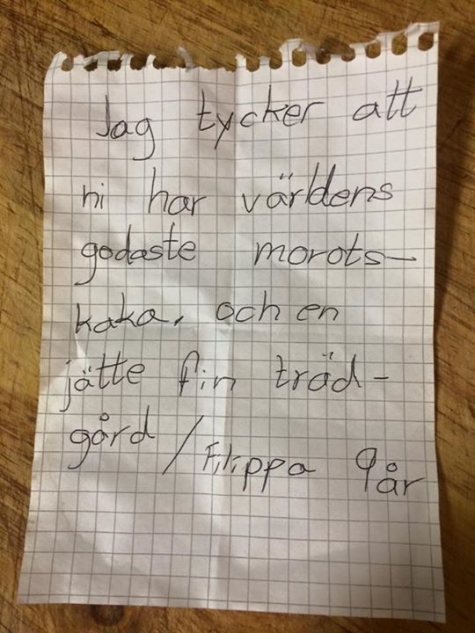 Jag tycker att
ni har världens
godaste morots-
kaka, och en
jätte fin träd-
gård /Filippa 9år